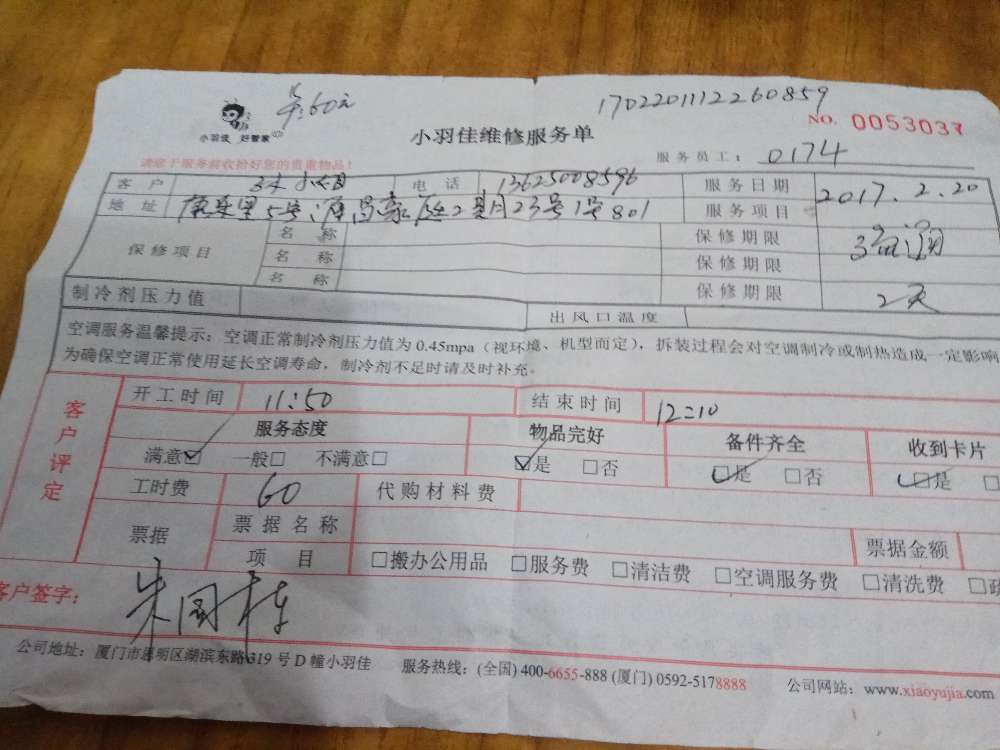 60元
1702201112260859
小羽佳 好管家
小羽佳维修服务单
NO. 0053037
请您于服务前收拾好您的贵重物品!
服务员工: 0174
客 户 小姐 电 话 13625008596 服务日期 2017.2.20
地 址 康乐里5号源昌豪庭2期23号1号801 服务项目
保修项目 名 称 保修期限
名 称 保修期限
名 称 保修期限 2天
制冷剂压力值 出风口温度
空调服务温馨提示: 空调正常制冷剂压力值为 0.45mpa (视环境、机型而定), 拆装过程会对空调制冷或制热造成一定影响
为确保空调正常使用延长空调寿命, 制冷剂不足时请及时补充。
客户评定
开工时间 11:50 结束时间 12=10
服务态度 物品完好 备件齐全 收到卡片
满意☑ 一般□ 不满意□ ☑是 □否 ☑是 □否 ☑是 □
工时费 60 代购材料费
票据 票据名称 票据金额
项 目 □搬办公用品 □服务费 □清洁费 □空调服务费 □清洗费 □
客户签字: 朱国栋
公司地址: 厦门市思明区湖滨东路319号D幢小羽佳 服务热线: (全国) 400-6655-888 (厦门) 0592-5178888 公司网站: www.xiaoyujia.com